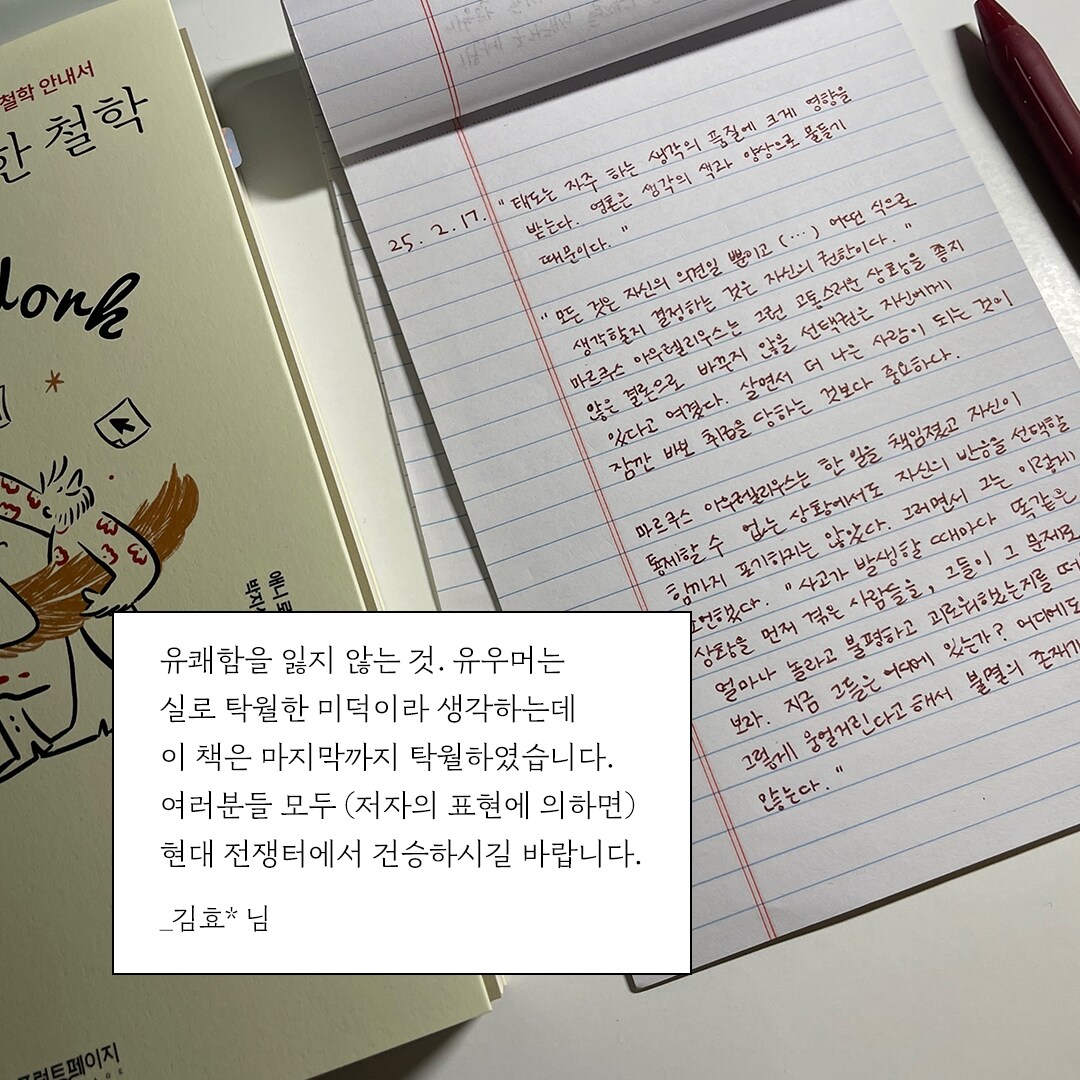 철학 안내서
한 철학
work
애니
프런트페이지
25. 2. 17. "태도는 자주 하는 생각의 품질에 크게 영향을
받는다. 영혼은 생각의 색과 양상으로 물들기
때문이다."
"모든 것은 자신의 의견일 뿐이고 (…) 어떤 식으로
생각할지 결정하는 것은 자신의 권한이다."
마르쿠스 아우렐리우스는 그런 고통스러운 상황을 좋지
않은 결론으로 바꾸지 않을 선택권은 자신에게
있다고 여겼다. 살면서 더 나은 사람이 되는 것이
잠깐 바보 취급을 당하는 것보다 중요하다.
마르쿠스 아우렐리우스는 한 일을 책임졌고 자신이
통제할 수 없는 상황에서도 자신의 반응을 선택할
힘까지 포기하지는 않았다. 그러면서 그는 이렇게
했다. "사고가 발생할 때마다 똑같은
상황을 먼저 겪은 사람들을, 그들이 그 문제로
얼마나 놀라고 불평하고 괴로워했는지를 떠
보라. 지금 그들은 어디에 있는가? 어디에도
그렇게 웅얼거린다고 해서 불멸의 존재가
않는다."
유쾌함을 잃지 않는 것. 유우머는
실로 탁월한 미덕이라 생각하는데
이 책은 마지막까지 탁월하였습니다.
여러분들 모두 (저자의 표현에 의하면)
현대 전쟁터에서 건승하시길 바랍니다.
_김효* 님